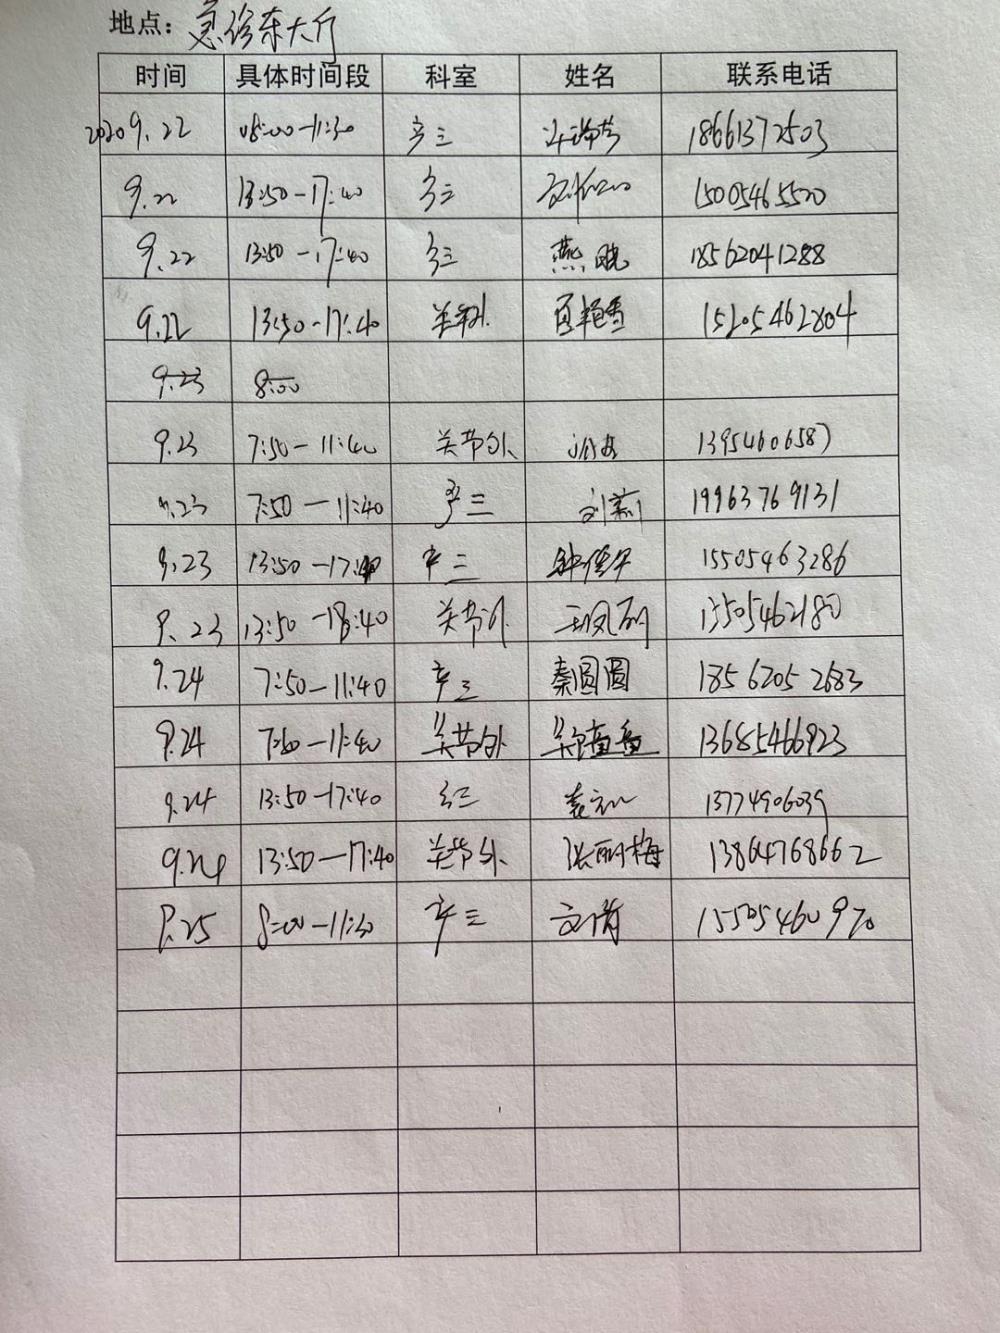 地点: 急诊东大厅
时间 具体时间段 科室 姓名 联系电话
2020 9.22 08:00-11:30 产三 18661372503
9.22 13:50-17:40 产三 15005465520
9.22 13:50-17:40 产三 燕晓 18562041288
9.22 13:50-17:40 关节外 15205462804
9.23 8:00
9.23 7:50-11:40 关节外 13954606587
9.23 7:50-11:40 产三 19963769131
9.23 13:50-17:40 产三 15505463286
9.23 13:50-18:40 关节外 13505462180
9.24 7:50-11:40 产三 秦圆圆 18562052683
9.24 7:50-11:40 关节外 13685466923
9.24 13:50-17:40 产三 13774906039
9.24 13:50-17:40 关节外 张丽梅 13864768662
9.25 8:00-11:30 产三 文倩 15505460970